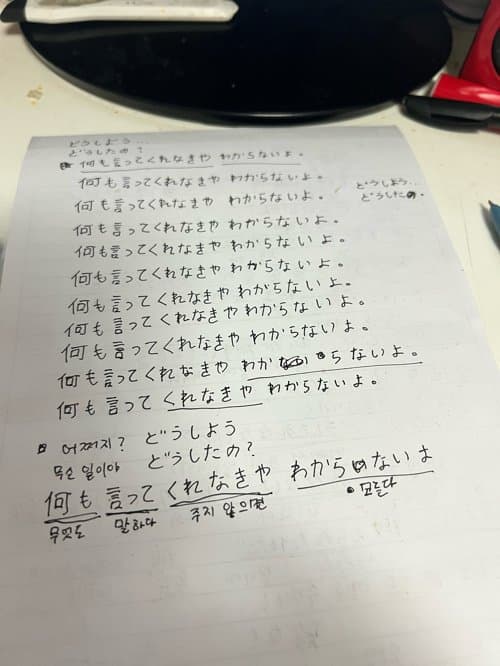 どうしよう...
どうしたの?
何も言ってくれなきや わからないよ。
何も言ってくれなきや わからないよ。
どうしよう...
どうしたの.
何も言ってくれなきや わからないよ。
何も言ってくれなきや わからないよ。
何も言ってくれなきや わからないよ。
何も言ってくれなきや わからないよ。
何も言ってくれなきや わからないよ。
何も言ってくれなきや わからないよ。
何も言ってくれなきや わからないよ。
何も言ってくれなきや わか らないよ。
何も言ってくれなきや わからないよ。
어쩌지? どうしよう
무슨 일이야 どうしたの?
何も 言って くれなきや わからないよ
무엇도 말하다 주지 않으면 모른다